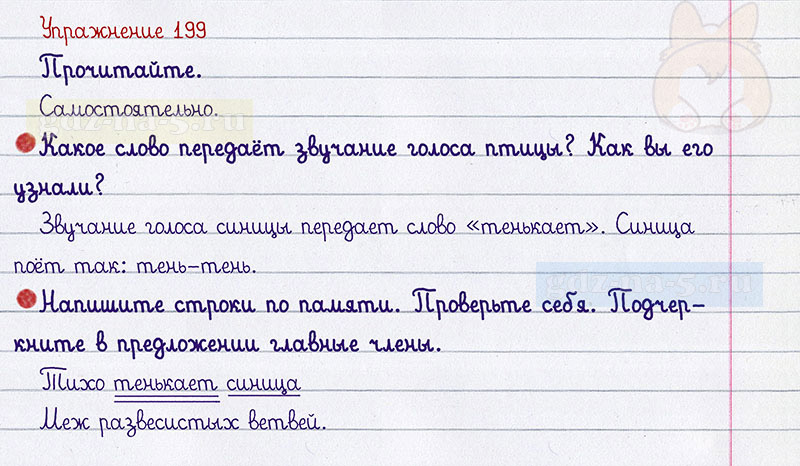 Упражнение 199
Прочитайте.
Самостоятельно.
gdz-na-5.ru
Какое слово передаёт звучание голоса птицы? Как вы его
узнали?
Звучание голоса синицы передает слово «тенькает». Синица
поёт так: тень-тень.
gdz-na-5.ru
Напишите строки по памяти. Проверьте себя. Подчер-
кните в предложении главные члены.
Тихо тенькает синица
Меж развесистых ветвей.